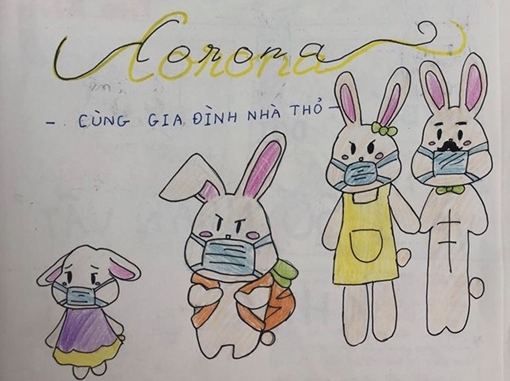 Corona
- CÙNG GIA ĐÌNH NHÀ THỎ -